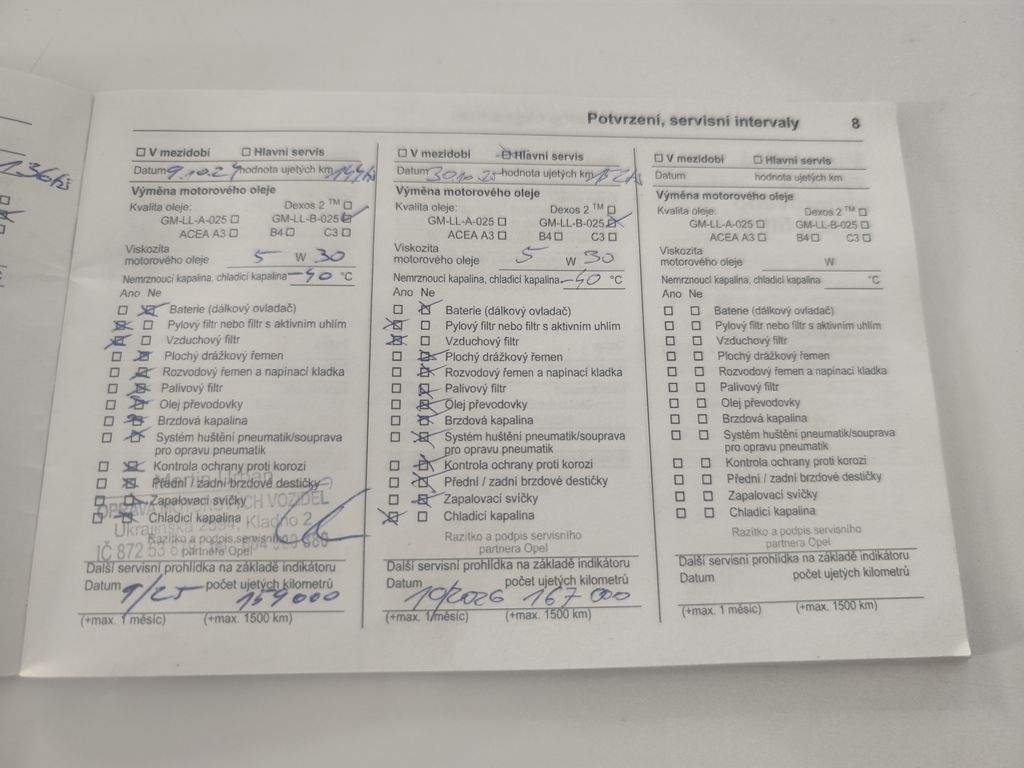 136
Potvrzení, servisní intervaly 8
☐ V mezidobí ☐ Hlavní servis
Datum 9.10.24 hodnota ujetých km 144
Výměna motorového oleje
Kvalita oleje: Dexos 2 ™ ☐
GM-LL-A-025 ☐ GM-LL-B-025 ☒
ACEA A3 ☐ B4 ☐ C3 ☐
Viskozita
motorového oleje 5 W 30
Nemrznoucí kapalina, chladicí kapalina -40 °C
Ano Ne
☐ ☒ Baterie (dálkový ovladač)
☒ ☐ Pylový filtr nebo filtr s aktivním uhlím
☒ ☐ Vzduchový filtr
☐ ☒ Plochý drážkový řemen
☐ ☒ Rozvodový řemen a napínací kladka
☐ ☒ Palivový filtr
☐ ☒ Olej převodovky
☐ ☒ Brzdová kapalina
☐ ☒ Systém huštění pneumatik/souprava
pro opravu pneumatik
☐ ☒ Kontrola ochrany proti korozi
☐ ☒ Přední / zadní brzdové destičky
☐ ☒ Zapalovací svíčky
☐ ☒ Chladicí kapalina
OPRAVA MOTOROVÝCH VOZIDEL
Ukrajinská Kladno 2
IČ 872 53
Razítko a podpis servisního
partnera Opel
Další servisní prohlídka na základě indikátoru
Datum 9/25 počet ujetých kilometrů 159 000
(+max. 1 měsíc) (+max. 1500 km)
☐ V mezidobí ☒ Hlavní servis
Datum 30.10.25 hodnota ujetých km 152
Výměna motorového oleje
Kvalita oleje: Dexos 2 ™ ☐
GM-LL-A-025 ☐ GM-LL-B-025 ☒
ACEA A3 ☐ B4 ☐ C3 ☐
Viskozita
motorového oleje 5 W 30
Nemrznoucí kapalina, chladicí kapalina -40 °C
Ano Ne
☐ ☒ Baterie (dálkový ovladač)
☒ ☐ Pylový filtr nebo filtr s aktivním uhlím
☒ ☐ Vzduchový filtr
☐ ☒ Plochý drážkový řemen
☐ ☒ Rozvodový řemen a napínací kladka
☐ ☒ Palivový filtr
☐ ☒ Olej převodovky
☐ ☒ Brzdová kapalina
☐ ☒ Systém huštění pneumatik/souprava
pro opravu pneumatik
☐ ☒ Kontrola ochrany proti korozi
☐ ☒ Přední / zadní brzdové destičky
☐ ☒ Zapalovací svíčky
☒ ☐ Chladicí kapalina
Razítko a podpis servisního
partnera Opel
Další servisní prohlídka na základě indikátoru
Datum 10/2026 počet ujetých kilometrů 167 000
(+max. 1 měsíc) (+max. 1500 km)
☐ V mezidobí ☐ Hlavní servis
Datum hodnota ujetých km
Výměna motorového oleje
Kvalita oleje: Dexos 2 ™ ☐
GM-LL-A-025 ☐ GM-LL-B-025 ☐
ACEA A3 ☐ B4 ☐ C3 ☐
Viskozita
motorového oleje W
Nemrznoucí kapalina, chladicí kapalina °C
Ano Ne
☐ ☐ Baterie (dálkový ovladač)
☐ ☐ Pylový filtr nebo filtr s aktivním uhlím
☐ ☐ Vzduchový filtr
☐ ☐ Plochý drážkový řemen
☐ ☐ Rozvodový řemen a napínací kladka
☐ ☐ Palivový filtr
☐ ☐ Olej převodovky
☐ ☐ Brzdová kapalina
☐ ☐ Systém huštění pneumatik/souprava
pro opravu pneumatik
☐ ☐ Kontrola ochrany proti korozi
☐ ☐ Přední / zadní brzdové destičky
☐ ☐ Zapalovací svíčky
☐ ☐ Chladicí kapalina
Razítko a podpis servisního
partnera Opel
Další servisní prohlídka na základě indikátoru
Datum počet ujetých kilometrů
(+max. 1 měsíc) (+max. 1500 km)